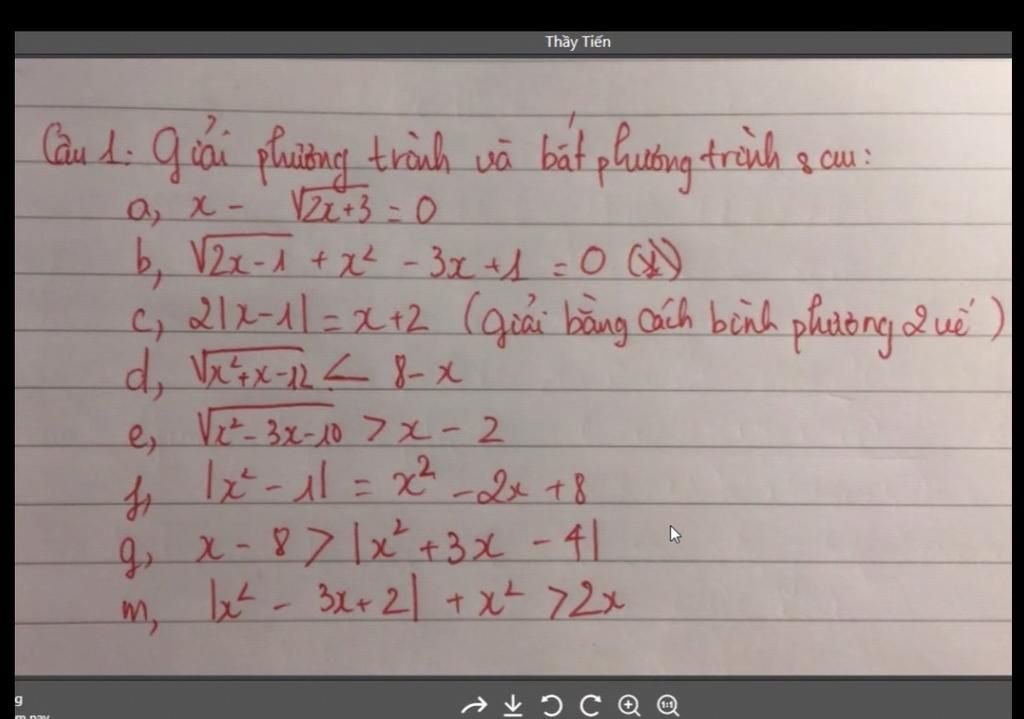 Thầy Tiến
Câu 1: Giải phương trình và bất phương trình sau:
a, x - √2x+3 = 0
b, √2x-1 + x² - 3x + 1 = 0 (*)
c, 2|x-1| = x+2 (giải bằng cách bình phương 2 vế)
d, √x²+x-12 < 8-x
e, √x²-3x-10 > x-2
f, |x²-1| = x²-2x+8
g, x-8 > |x²+3x-4|
m, |x²-3x+2| + x² > 2x
1:1